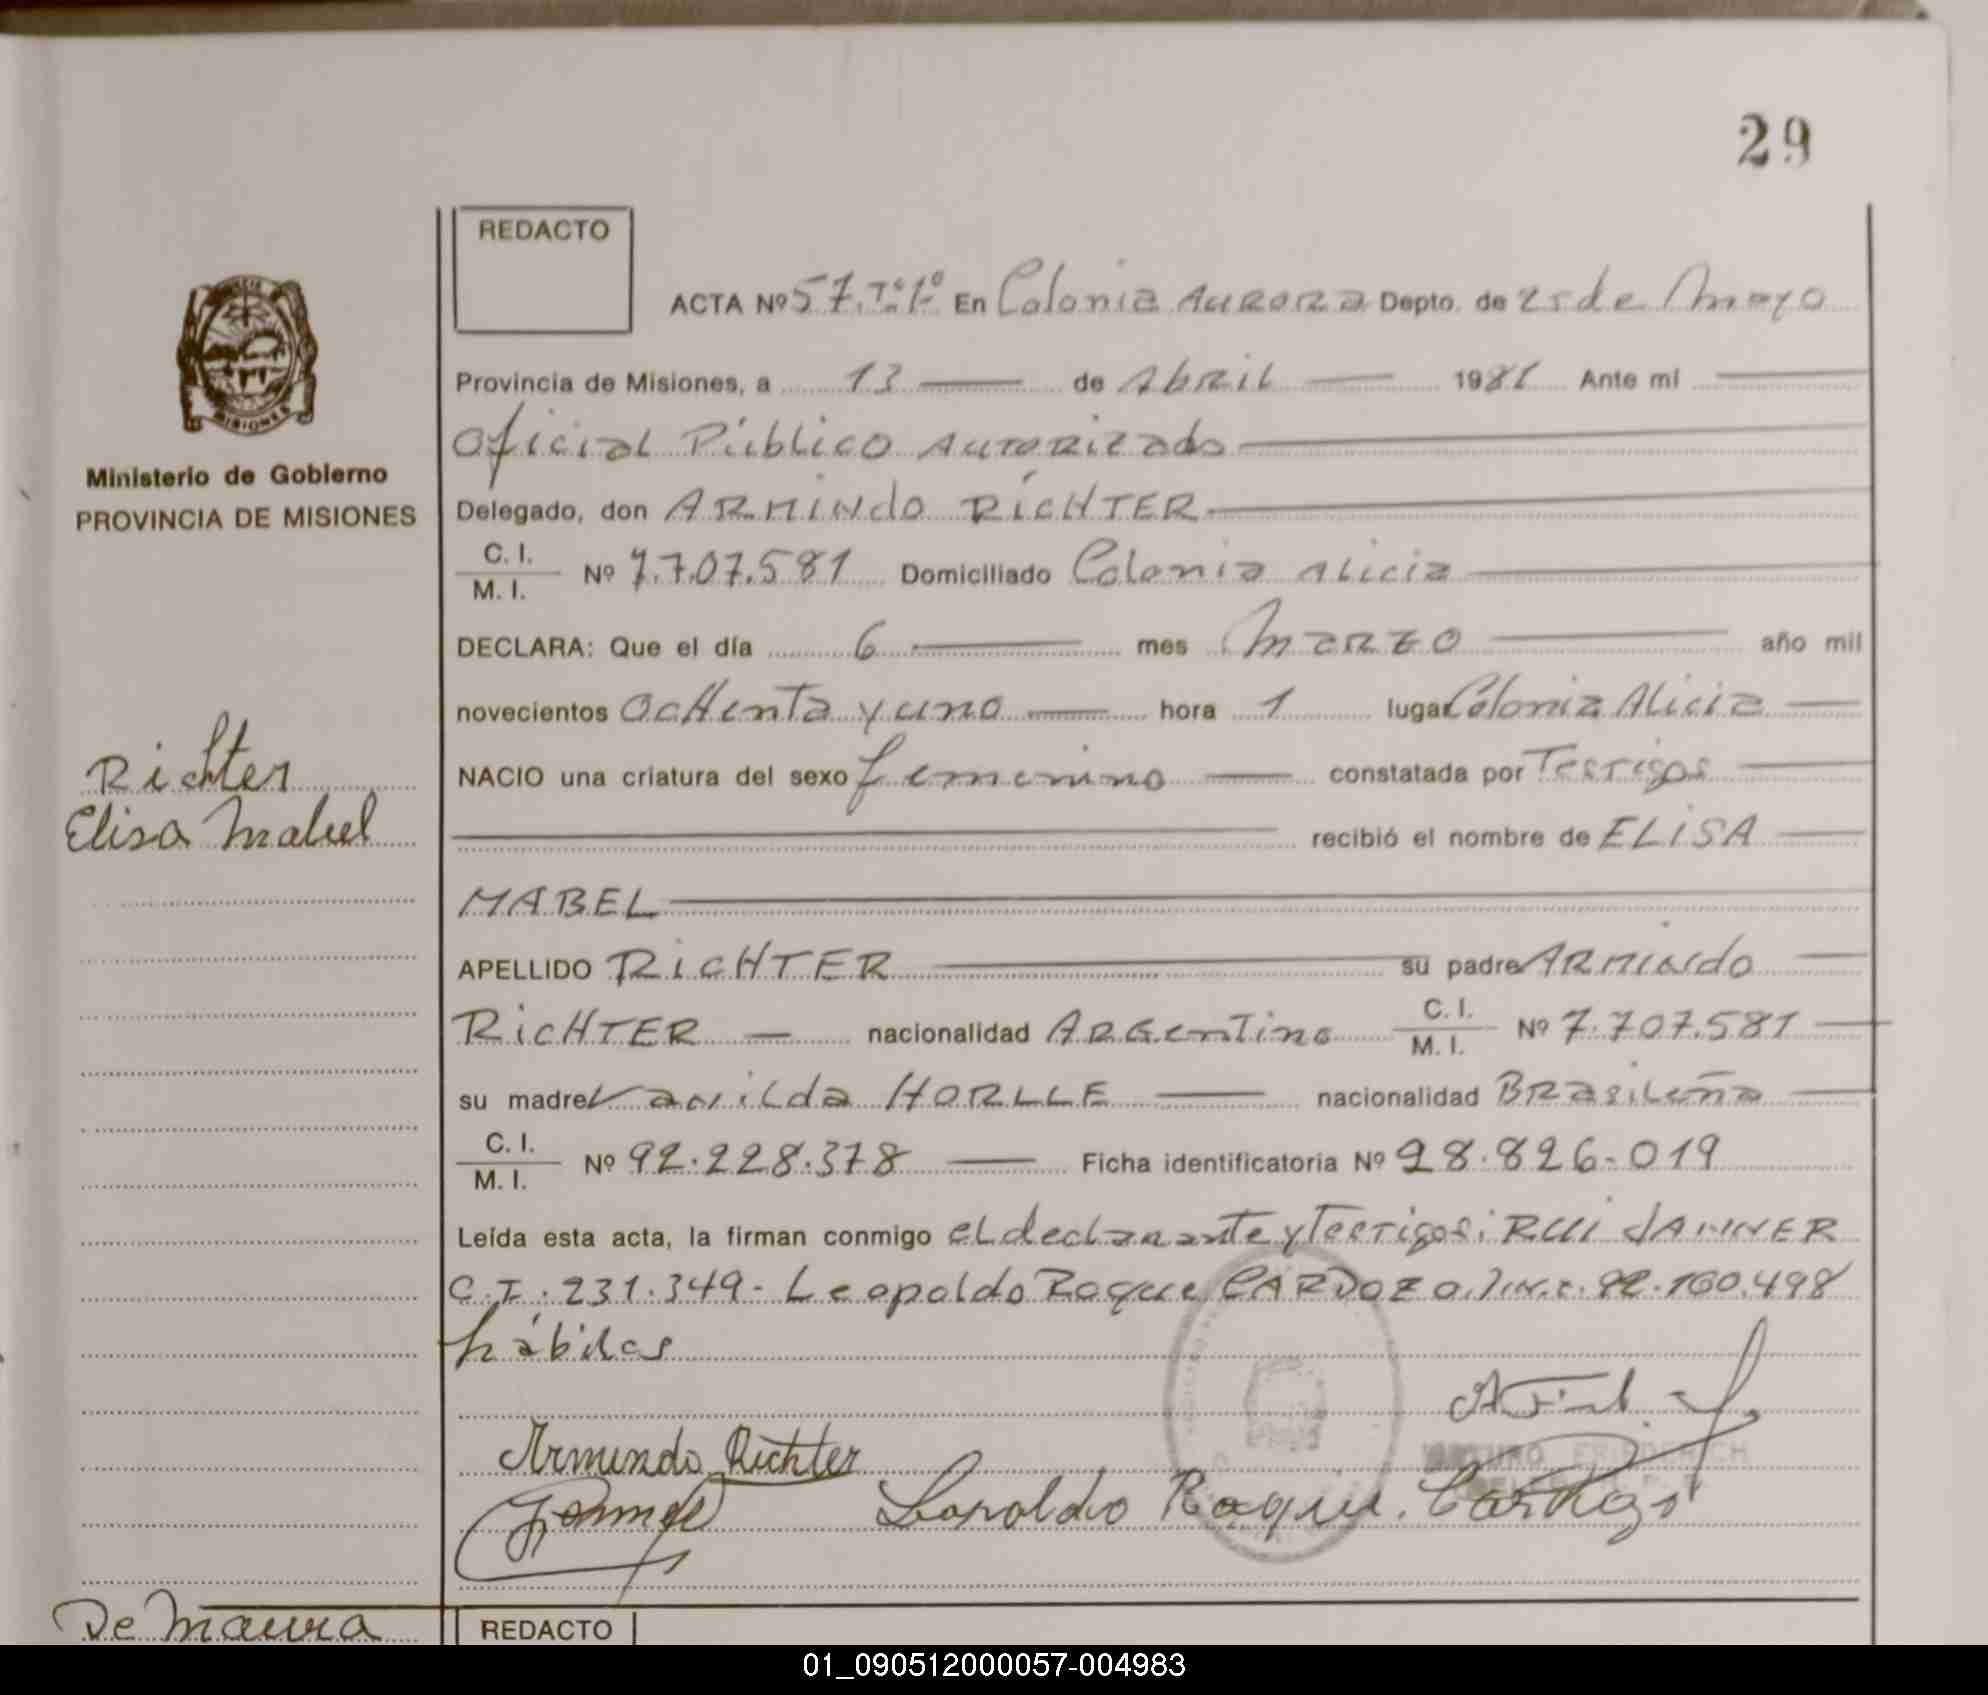 29
REDACTO
ACTA Nº 57. Tº 1º En Colonia Aurora Depto. de 25 de Mayo
Provincia de Misiones, a 13 de Abril 1981 Ante mi
Oficial Público Autorizado
Ministerio de Gobierno
PROVINCIA DE MISIONES
Delegado, don ARMINDO RICHTER
C. I.
M. I. Nº 7.707.581 Domiciliado Colonia Alicia
DECLARA: Que el día 6 mes Marzo año mil
novecientos ochenta y uno hora 1 lugar Colonia Alicia
Richter
Elisa Mabel
NACIO una criatura del sexo femenino constatada por Testigos
recibió el nombre de ELISA
MABEL
APELLIDO RICHTER su padre ARMINDO
RICHTER nacionalidad Argentino C. I.
M. I. Nº 7.707.581
su madre Vanilda HORLLE nacionalidad Brasileña
C. I.
M. I. Nº 92.228.378 Ficha identificatoria Nº 28.826.019
Leída esta acta, la firman conmigo el declarante y Testigos: RUI JANNER
C.I.: 231.349- Leopoldo Roque CARDOZO, 92.160.498
hábiles
Armindo Richter
ARTURO FRIEDERICH
Leopoldo Roque Cardozo
De Maura
REDACTO
01_090512000057-004983